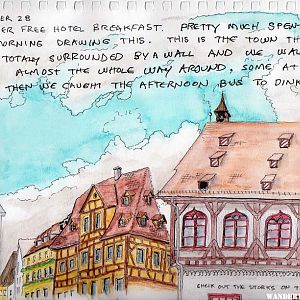 BER 28
ER FREE HOTEL BREAKFAST. PRETTY MUCH SPEN
ORNING DRAWING THIS. THIS IS THE TOWN TH
TOTALLY SURROUNDED BY A WALL AND WE WAL
ALMOST THE WHOLE WAY AROUND, SOME AT
THEN WE CAUGHT THE AFTERNOON BUS TO DINK
CHECK OUT THE STORKS ON T